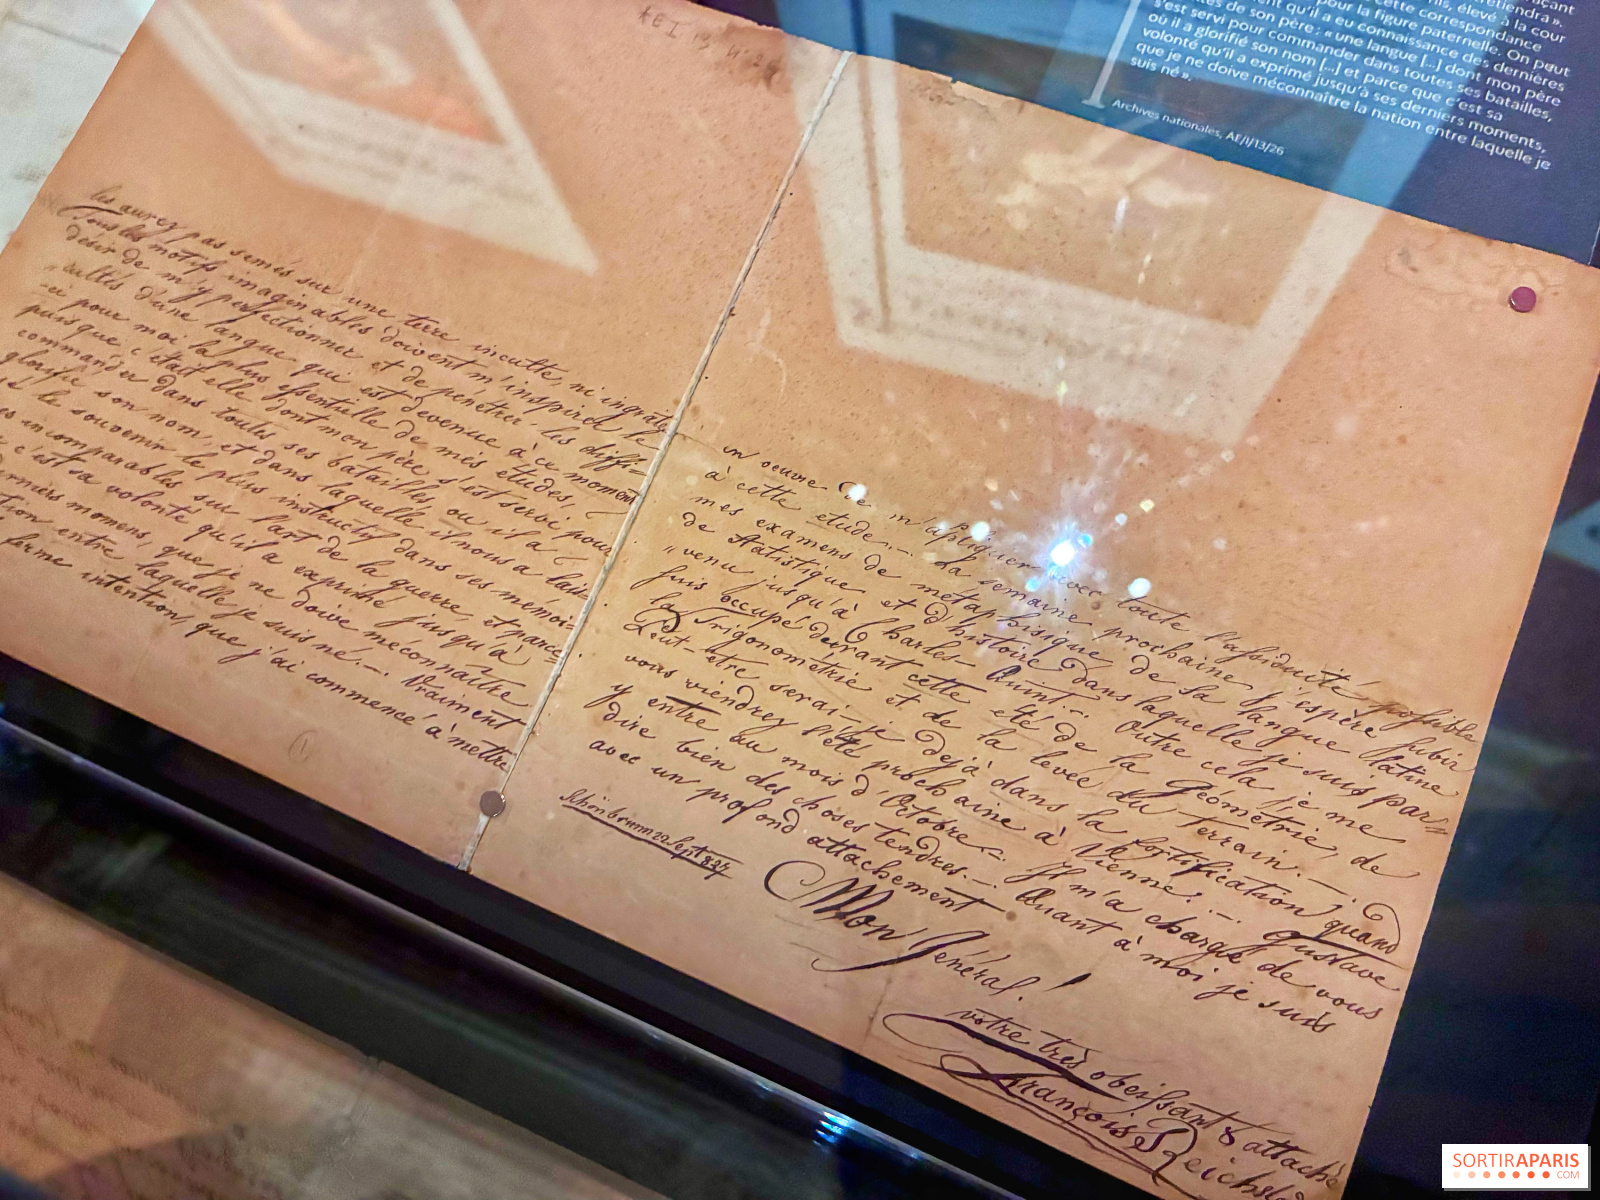 AE I 13 N° 26
les aurez pas semés sur une terre inculte, ni ingrate
Tous les motifs imaginables doivent m'inspirer le
désir de m'y perfectionner et de pénétrer les diffi-
cultés d'une langue qui est devenue à ce moment
-ci pour moi la plus essentielle de mes études,
puisque c'était elle dont mon père s'est servi pour
commander dans toutes ses batailles, ou il a
glorifié son nom, et dans laquelle il nous a lais-
le souvenir le plus instructif dans ses memoi-
incomparables sur l'art de la guerre, et parce
c'est sa volonté qu'il a exprimé jusqu'à
derniers momens, que je ne doive méconnaître
entre laquelle je suis né.— Vraiment
ferme intention, que j'ai commencé à mettre
en oeuvre de m'apliquer avec toute l'assiduité possible
à cette etude.— La semaine prochaine j'espère subir
mes examens de métaphisique, de la langue latine
de statistique et d'histoire dans laquelle je suis par-
"venu jusqu'à Charles-Quint.— Outre cela je me
suis occupé durant cette eté de la Géométrie, de
la Trigonométrie et de la levée du Terrain.—
Peut-être serai-je dejà dans la fortification, quand
vous viendrez l'été prochaine à Vienne.— Gustave
y entre au mois d'Octobre.— Il m'a chargé de vous
dire bien des choses tendres.— Quant à moi je suis
avec un profond attachement
Schönbrunn 22 Sept 1824
Mon Général!
votre très obeissant & attaché
François
retiendra ».
nis, élevé à la cour
qu'il a eu connaissance des dernières
cette correspondance
pour la figure paternelle. On peut
de son père : « une langue [...] dont mon père
s'est servi pour commander dans toutes ses batailles,
où il a glorifié son nom [...] et parce que c'est sa
volonté qu'il a exprimé jusqu'à ses derniers moments,
que je ne doive méconnaître la nation entre laquelle je
suis né ».
Archives nationales, AE/I/13/26
SORTIRAPARIS
.COM